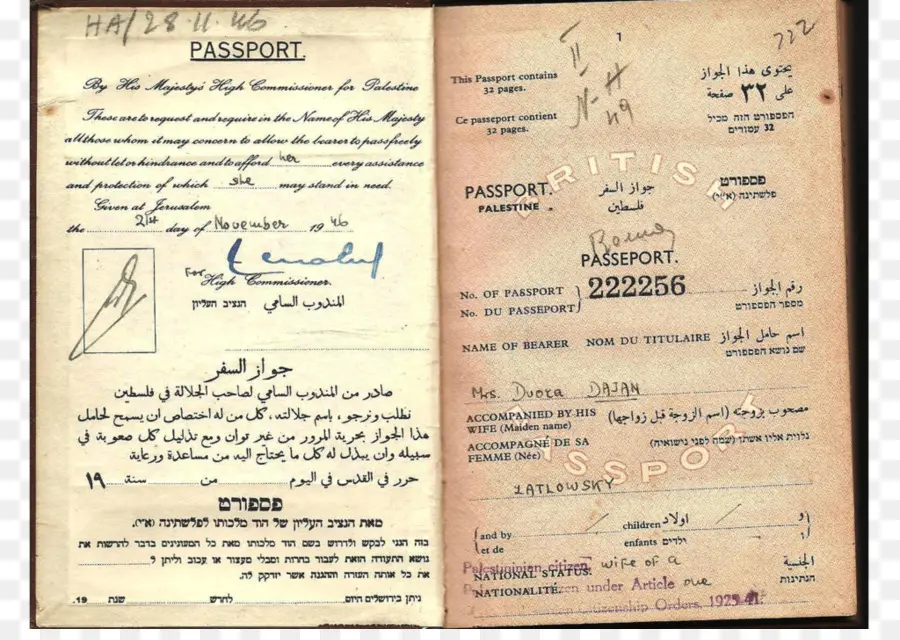 HA/28.11.46
PASSPORT.
By His Majesty's High Commissioner for Palestine
These are to request and require in the Name of His Majesty
all those whom it may concern to allow the bearer to pass freely
without let or hindrance and to afford her every assistance
and protection of which she may stand in need.
Given at Jerusalem
the 21st day of November 1946
For
High Commissioner.
المندوب السامي הנציב העליון
جواز السفر
صادر من المندوب السامي لصاحب الجلالة في فلسطين
نطلب ونرجو، باسم جلالته، كل من له اختصاص ان يسمح لحامل
هذا الجواز بحرية المرور من غير توان ومع تذليل كل صعوبة في
سبيله وان يبذل له كل ما يحتاج اليه من مساعدة ورعاية
حرر في القدس في اليوم من سنة ١٩
פספורט
מאת הנציב העליון של הוד מלכותו לפלשתינה (א״י).
בזה הנני לבקש ולדרוש בשם הוד מלכותו מאת כל המעונינים בדבר להרשות את
נושא התעודה הזאת לעבור בחרות ומבלי מעצור או עכוב וליתן ל
את כל אותה העזרה וההגנה אשר יזדקק לה.
ניתן בירושלים היום לחדש שנת 19
1
222
II
N-H
49
This Passport contains
32 pages.
يحتوي هذا الجواز
على ٣٢ صفحة
Ce passeport contient
32 pages.
הפספורט הזה מכיל
32 עמודים
BRITISH
PASSPORT. جواز السفر פספורט
PALESTINE. فلسطين פלשתינה (א״י)
PASSEPORT.
No. OF PASSPORT
No. DU PASSEPORT
222256
رقم الجواز
מספר הפספורט
NAME OF BEARER NOM DU TITULAIRE اسم حامل الجواز
שם נושא הפספורט
Mrs. Dvora DAJAN
ACCOMPANIED BY HIS
WIFE (Maiden name)
مصحوب بزوجته (اسم الزوجة قبل زواجها)
ACCOMPAGNÉ DE SA
FEMME (Née)
נלוית אליו אשתו (שמה לפני נישואיה)
PASSPORT
ZATLOWSKY
and by
et de
children اولاد
enfants ילדים
و
ו
Palestinian citizen,
NATIONAL STATUS: wife of a
الجنسية
citizen under Article one
NATIONALITÉ.
הנתינות
Citizenship Orders, 1925-41.